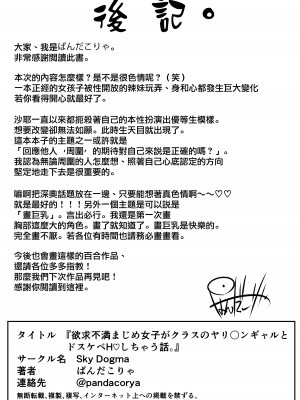 後記。
大家、我是ぱんだこりゃ。
非常感謝閱讀此書。
本次的內容怎麼樣？是不是很色情呢？（笑）
一本正經的女孩子被性開放的辣妹玩弄、身和心都發生巨大變化
若你看得開心就最好了。
沙耶一直以來都扼殺著自己的本性扮演出優等生模樣。
想要改變卻無法如願。此時生天目就出現了。
這本本子的主題之一或許就是
「回應他人、周圍、的期待對自己來說是正確的嗎？」。
我認為無論周圍的人怎麼想、照著自己心底認定的方向
堅定地走下去是很重要的。
嘛啊把深奧話題放在一邊、只要能想著真色情啊～～♡♡
就是最好的！！！另外一個主題是可以説是
「畫巨乳」。言出必行。我還是第一次畫
胸部這麼大的角色。畫了就知道了。畫巨乳是快樂的。
完全畫不厭。若各位有時間也請務必畫畫看。
今後也會畫這樣的百合作品、
還請各位多多指教！
那麼我們下次作品再見吧！
感謝你閱讀到這裡。
タイトル 『欲求不満まじめ女子がクラスのヤリ〇ンギャルと
ドスケベH♡しちゃう話。』
サークル名 Sky Dogma
著者 ぱんだこりゃ
連絡先 @pandacorya
無断転載、複製、複写、インターネット上への掲載を禁ずる。